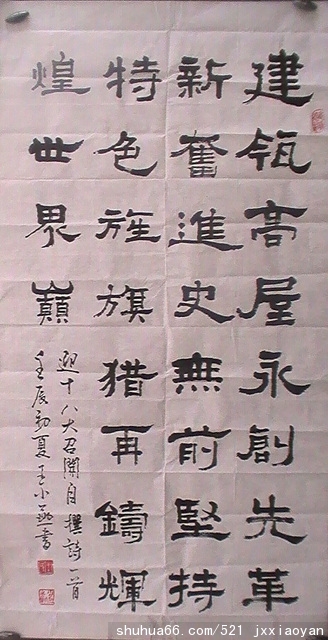 建瓴高屋永創先革
新奮進史無前堅持
特色旌旗猎再鑄輝
煌世界巔
迎十八大召開自撰詩一首
壬辰初夏王小燕書
shuhua66.com/521 jxxiaoyan